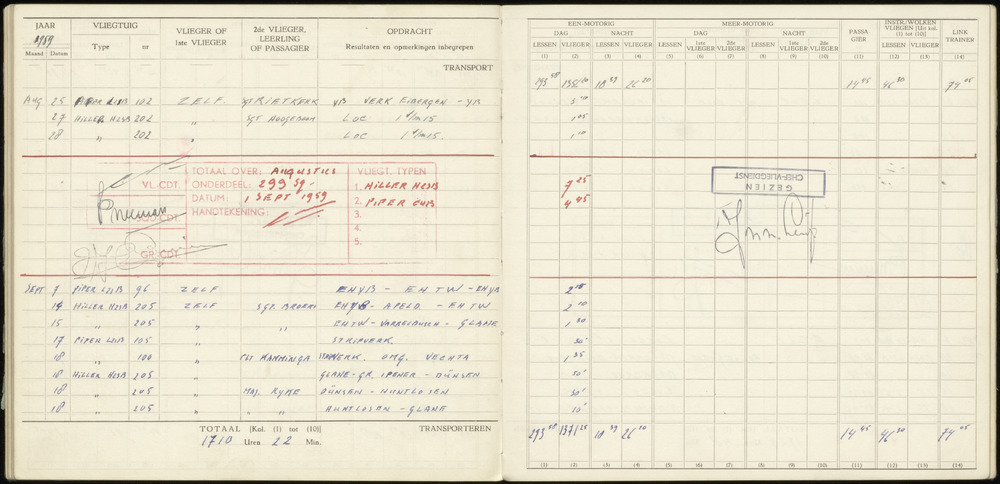 JAAR
1959
Maand Datum
VLIEGTUIG
Type nr
VLIEGER OF
1ste VLIEGER
2de VLIEGER,
LEERLING
OF PASSAGIER
OPDRACHT
Resultaten en opmerkingen inbegrepen
TRANSPORT
AUG 25 PIPER L21B 102 ZELF. SGT RIETKERK YB VERK EIBERGEN - YB
27 HILLER H23B 202 " SGT HOOGEBOOM LOC 1 t/m 15.
28 " 202 " LOC 1 t/m 15.
VL.CDT.
GR.CDT.
TOTAAL OVER: AUGUSTUS
ONDERDEEL: 299 SQ.
DATUM: 1 SEPT 1959
HANDTEKENING:
VLIEGT. TYPEN
1. HILLER H23B
2. PIPER CUB
3.
4.
5.
SEPT 7 PIPER L21B 96 ZELF EHYB - EHTW - EHYB
14 HILLER H23B 205 ZELF SGT. BROERS EHYB - APELD. - EHTW
15 " 205 " " EHTW - VARRELBUSCH - GLANE
17 PIPER L21B 105 " STRIPVERK.
18 " 100 " MANNINGA VERK. OMG. VECHTA
18 HILLER H23B 205 " GLANE - GR. IPENER - DÜNSEN
18 " 205 " MAJ. KYME DÜNSEN - HUNTLOSEN
18 " 205 " " " HUNTLOSEN - GLANE
TOTAAL [Kol. (1) tot (10)]
1710 Uren 22 Min.
TRANSPORTEREN
EEN-MOTORIG
DAG NACHT
LESSEN VLIEGER LESSEN VLIEGER
(1) (2) (3) (4)
MEER-MOTORIG
DAG NACHT
LESSEN 1ste VLIEGER 2de VLIEGER LESSEN 1ste VLIEGER 2de VLIEGER
(5) (6) (7) (8) (9) (10)
PASSA-
GIER
(11)
INSTR./WOLKEN
VLIEGEN [Uit kol.
(1) tot (10)]
LESSEN VLIEGER
(12) (13)
LINK
TRAINER
(14)
293 58 1356 20 18 39 26 20 14 45 46 30 74 05
1 05
1 10
7 25
4 45
GEZIEN
CHEF-VLIEGDIENST
2 10
1 30
30'
1 35
50'
30'
10'
293 58 1371 25 18 39 26 20 14 45 46 30 74 05
(1) (2) (3) (4) (5) (6) (7) (8) (9) (10) (11) (12) (13) (14)